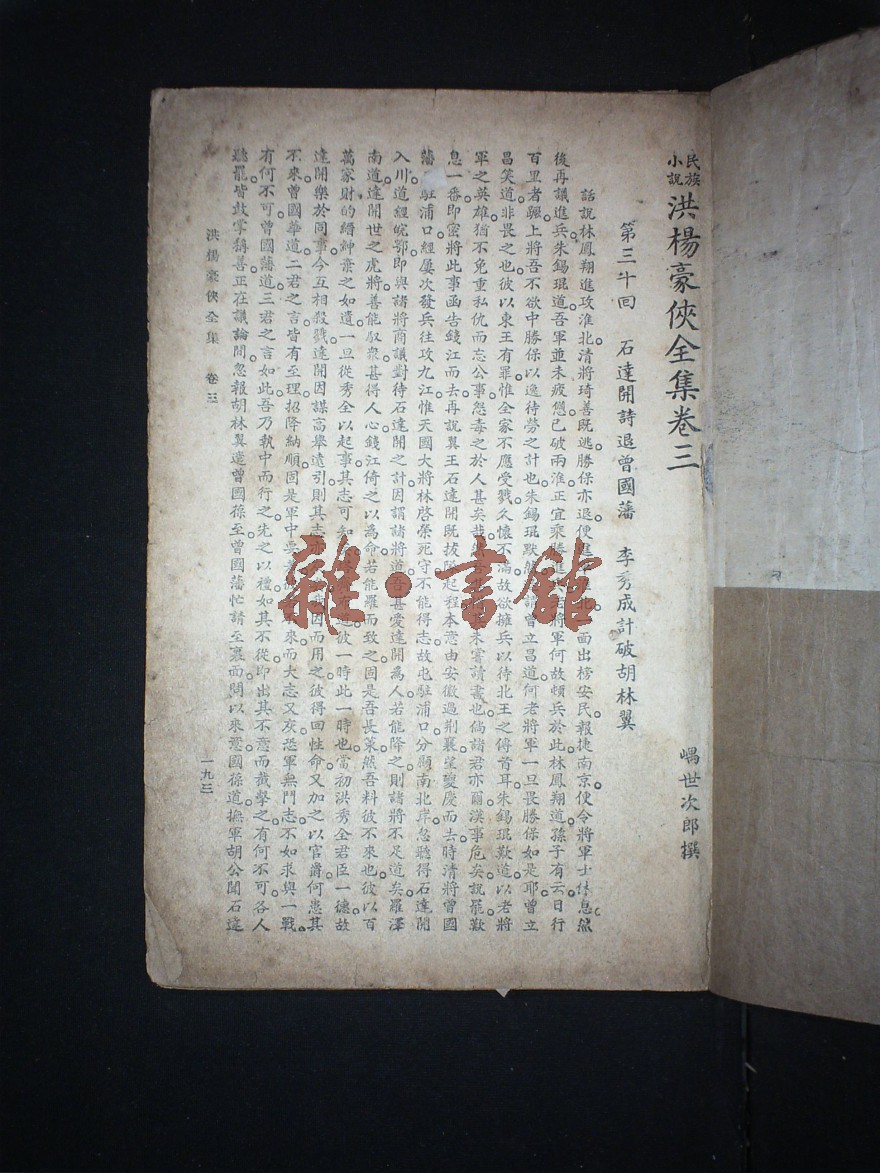 民族小說 洪楊豪俠全集卷三
嵎世次郎撰
第三十回 石達開詩退曾國藩 李秀成計破胡林翼
話說林鳳翔進攻淮北。清將琦善既逃。勝保亦退。便進 北一面出榜安民。報捷南京。便令將軍士休息。然
後再議進兵。朱錫琨道。吾軍並未疲憊。已破兩淮。正宜乘勝 老將軍何故頓兵於此。林鳳翔道。孫子有云。日行
百里者蹶上將。吾不欲中勝保以逸待勞之計也。朱錫琨默然 曾立昌道。何老將軍一旦畏勝保如是耶。曾立
昌笑道。非畏之也。彼以東王有罪。惟全家不應受戮。久懷不滿。故欲擁兵以待北王之傳首耳。朱錫琨歎道。以老將
軍之英雄。猶不免重私仇而忘公事。怨毒之於人甚矣哉。 未嘗讀書也。倘諸君亦爾。漢事危矣。說罷歎
息一番。即密將此事函告錢江而去。再說翼王石達開既拔 起程。本意由安徽過荆襄望夔慶而去。時清將曾國
藩。駐浦口。經屢次發兵往攻九江。惟天國大將林啓榮死守。不能得志。故屯駐浦口。分顧南北岸。忽聽得石達開
入川道經皖鄂。即與諸將商議對待石達開之計。因謂諸將道。吾甚愛達開爲人。若能降之。則諸將不足道矣。羅澤
南道。達開世之虎將。善能馭衆。甚得人心。錢江倚之以爲命。若能羅而致之。固是吾長策。然吾料彼不來也。彼以百
萬家財的縉紳。棄之如遺。一旦從秀全以起事。其志可知 道。彼一時此一時也。當初洪秀全君臣一德。故
達開樂於同事。今互相殺戮。達開因謀高舉遠引。則其志 因而用之。彼得回性命。又加之以官爵。何患其
不來。曾國華道。二君之言。皆有至理。招降納順。固是軍中要 來。而大志又灰。恐軍無鬥志。不如求與一戰。
有何不可。曾國藩道。三君之言如此。吾乃執中而行之。先之以禮。如其不從。即出其不意而截擊之。有何不可。各人
聽罷。皆鼓掌稱善。正在議論間。忽報胡林翼遣曾國葆至。曾國藩忙請至裏面。問以來意。國葆道。撫軍胡公聞石達
洪楊豪俠全集 卷三
一九三
雜·書館